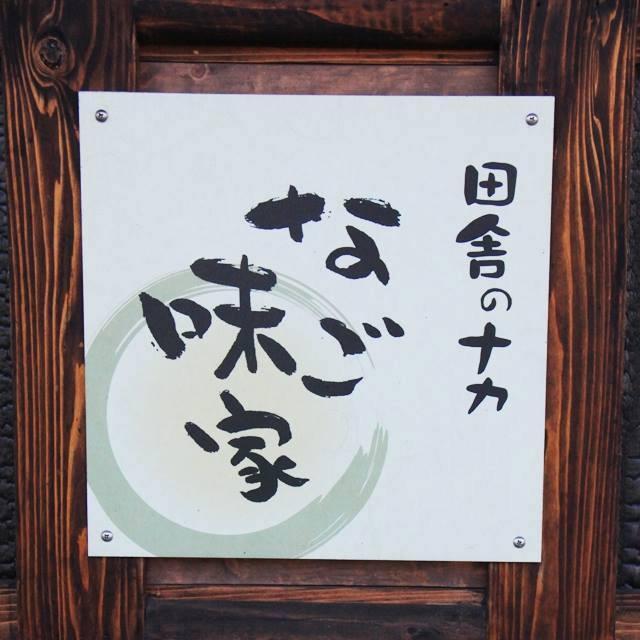 田舎のナカ
なご
味家